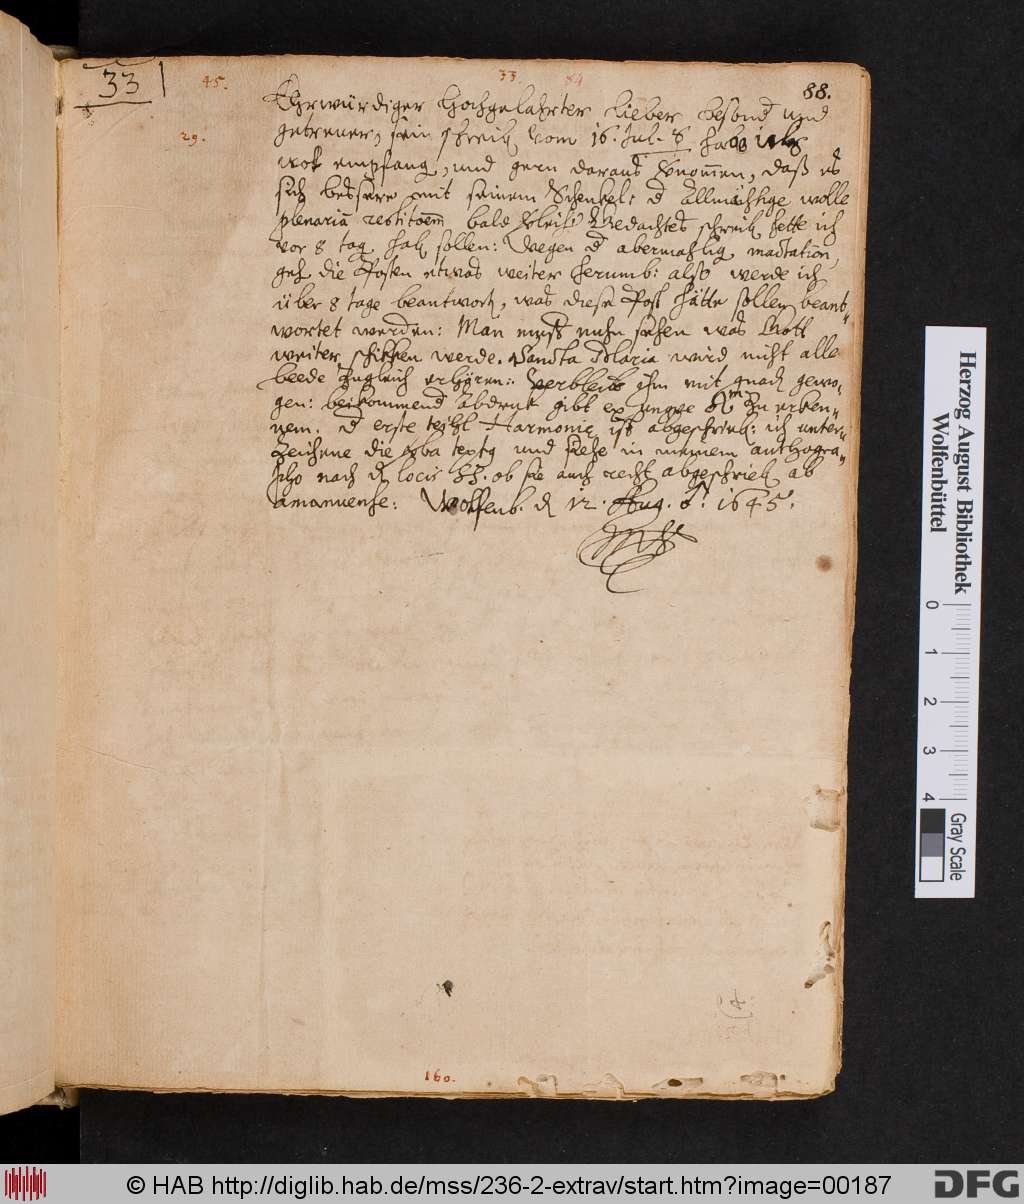 33
45.
33
84
88.
Ehrwürdiger Hochgelahrter lieber besond und
29.
getrewer, sein schreib vom 16. Jul. habe
wol empfang, und gern daraus vernomen, daß es
sich bessere mit seinem Schenkel: d Allmächtige wolle
plenariā restitoem bald verleihē Gedachtes schreib hette ich
vor 8 tag hab sollen: Wegen d abermahlig mactation,
geh die Posten etwas weiter herumb: also werde ich
über 8 tage beantwort, was diese Post hätte sollen beant-
wortet werden: Man muß nuhn sehen was Gott
weiter schikken werde. Sancta Maria wird nicht alle
beede zugleich erhören: Verbleib ihm mit gnad gewo-
gen: beikommend Abdruk gibt ex ungue zu erken-
nen. d erste teihl Harmoniæ ist abgeschrieb: ich unter-
zeichene die verba textq und sehe in meinem authogra-
pho nach d locis SS. ob sie auch recht abgeschrieb ab
amanuense: Wolfenb. d 12. Aug. 1645.
160.
Herzog August Bibliothek
Wolfenbüttel
0 1 2 3 4
Gray Scale
© HAB http://diglib.hab.de/mss/236-2-extrav/start.htm?image=00187
DFG